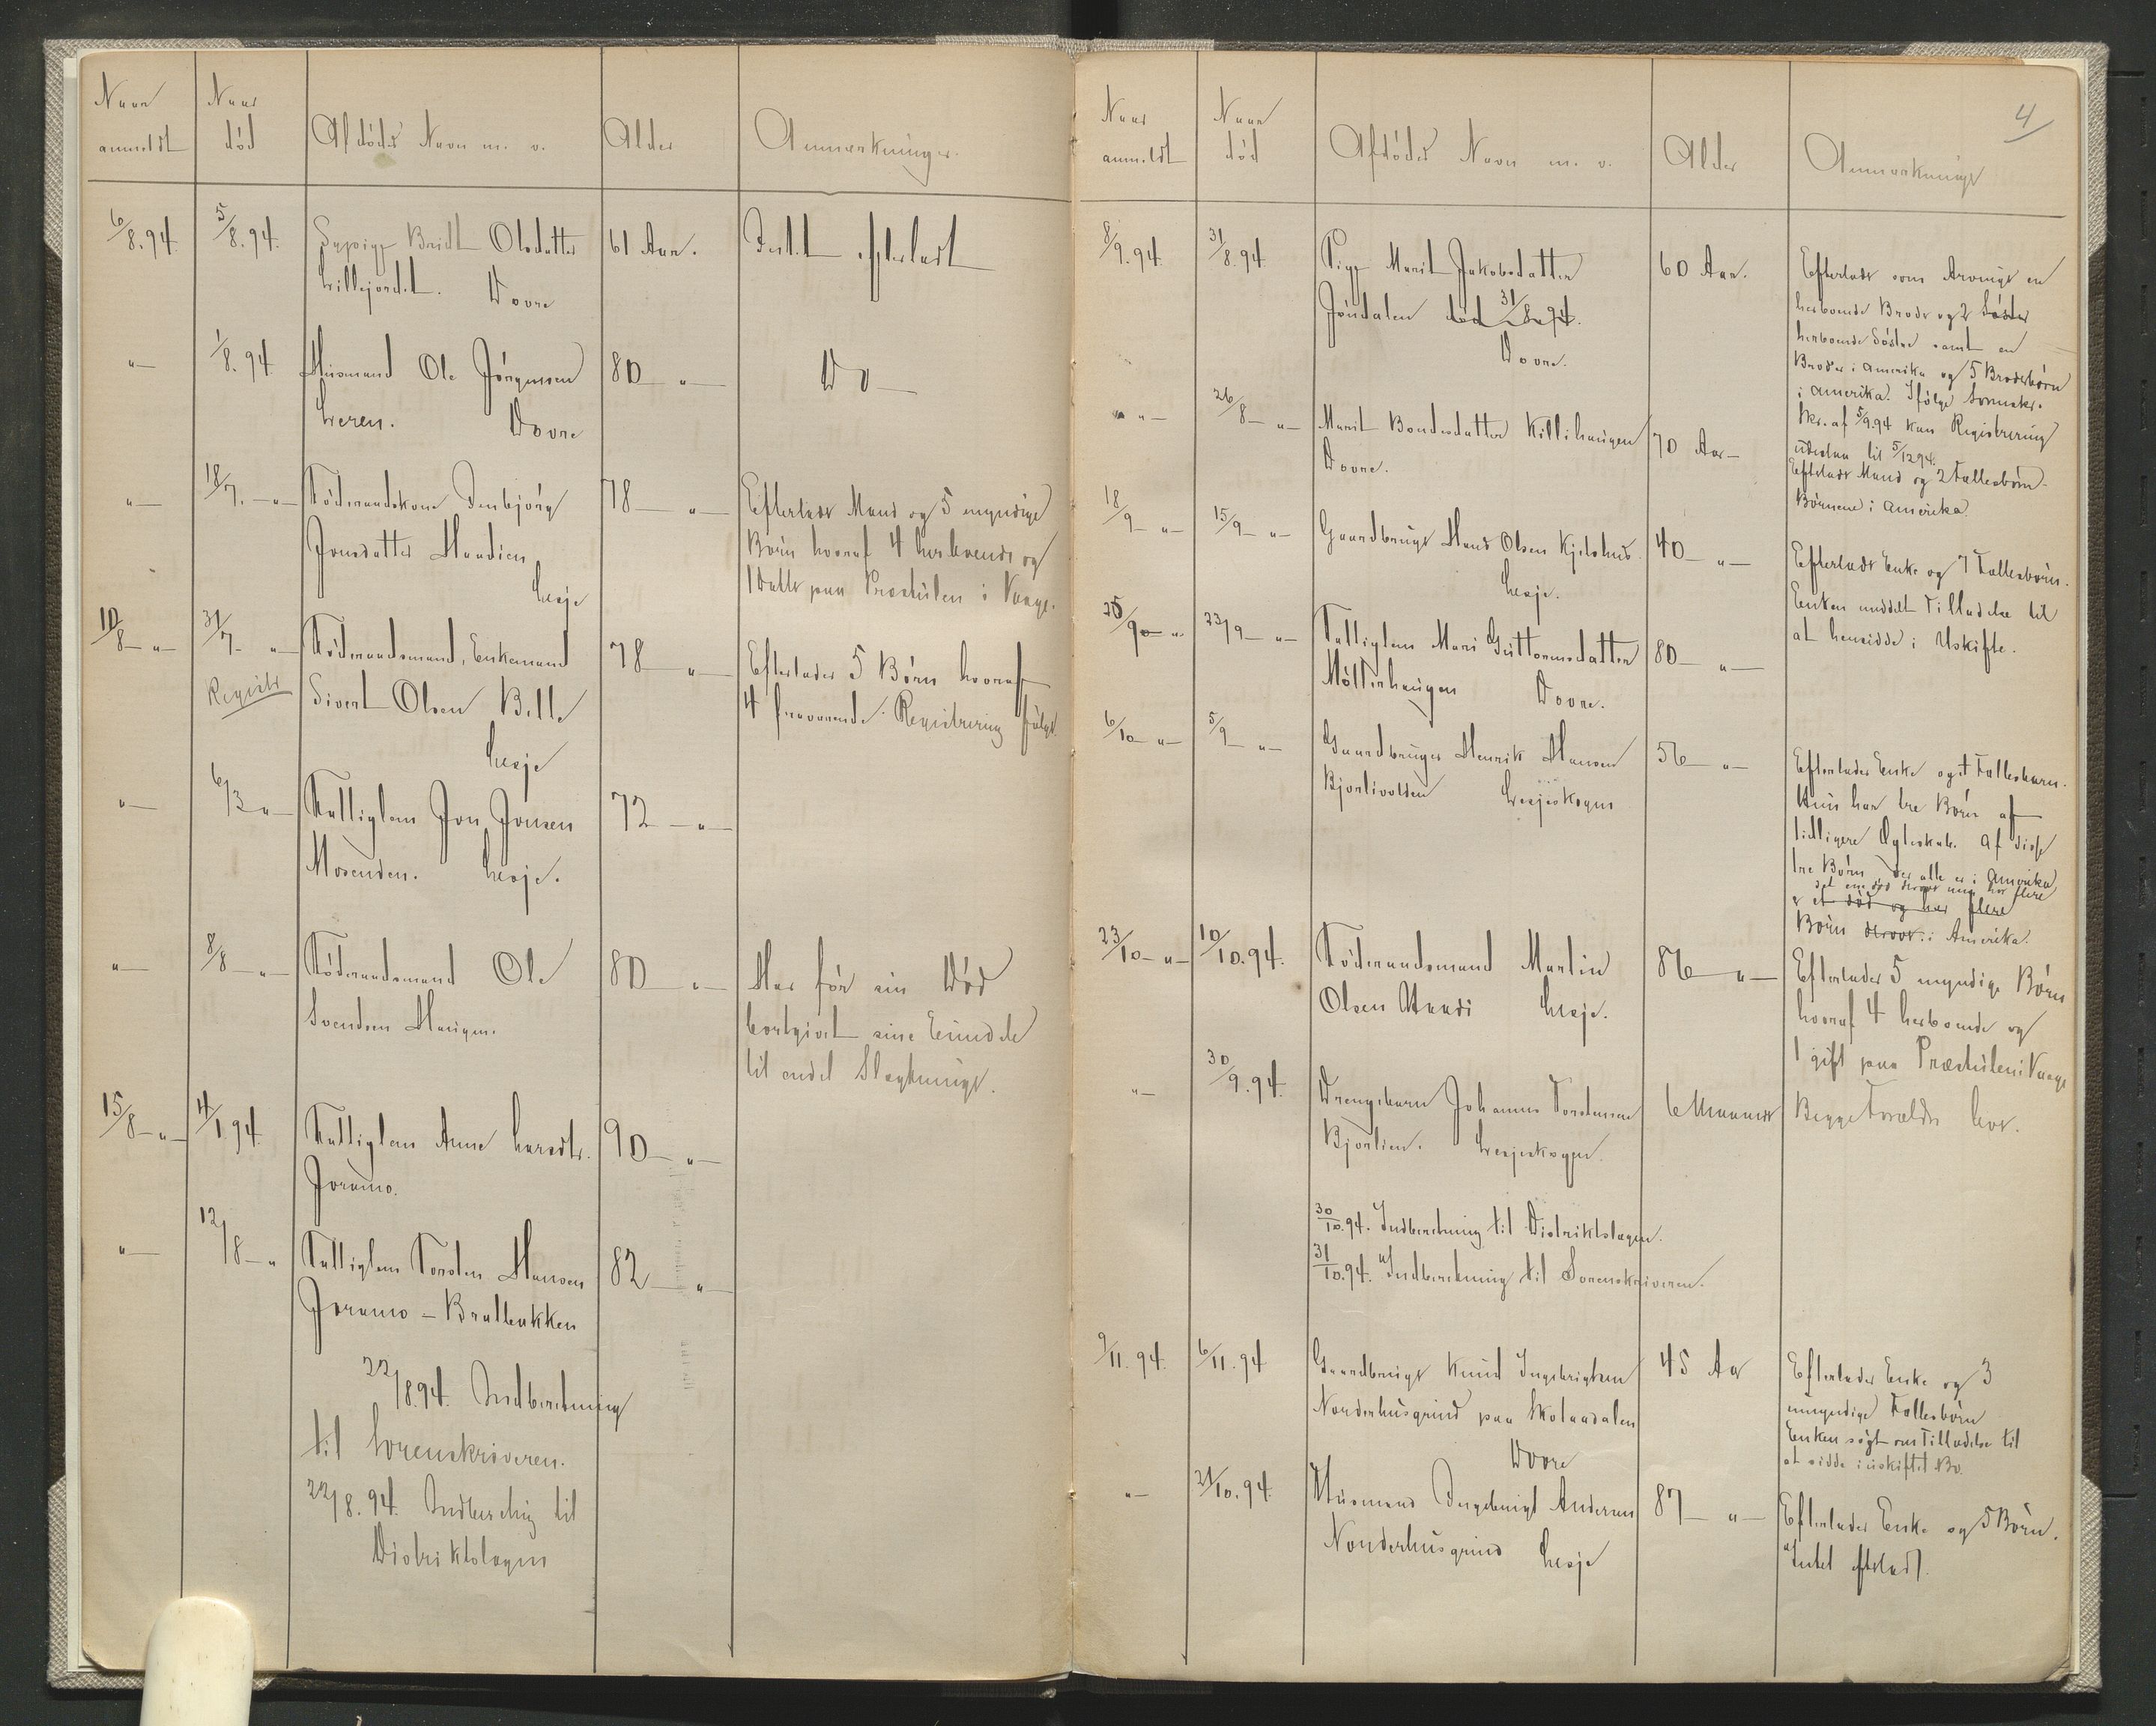 Naar
anmeldt
Naar
død
Afdødes Navn m. v.
Alder
Anmærkninger.
6/8.94.
5/8.94.
Sypige Bridt Olsdatter
Lillejordet. Dovre
61 Aar.
Intet efterladt
"
1/8.94
Husmand Ole Jørgensen
Leren. Dovre
80 "
Do
"
18/7. "
Föderaadskone Imbjörg
Jonsdatter Haadien
Lesje
78 "
Efterlader Mand og 5 myndige
Børn hvoraf 4 herboende og
1 Datter paa Præstulen i Vaage.
10/8 "
31/7 "
Registr
Föderaadsmand, Enkemand
Sivert Olsen Belle
Lesje
78 "
Efterlader 5 Børn hvoraf
4 fraværende. Registrering følger
"
6/3 "
Fattiglem Jon Jonsen
Mosenden. Lesje.
72 "
"
8/8 "
Föderaadsmand Ole
Svendsen Haugen.
80 "
Har før sin Død
bortgivet sine Eiendele
til endel Slægtninge.
15/8 "
4/1.94.
Fattiglem Anne Larsdtr.
Joramo.
90 "
"
12/8 "
Fattiglem Torsten Hansen
Joramo - Bratbakken
82 "
22/8.94. Indberetning
til Sorenskriveren.
22/8.94. Indberetnig til
Distriktslægen
4
Naar
anmeldt
Naar
død
Afdødes Navn m. v.
Alder
Anmærkninger
8/9.94.
31/8.94
Pige Marit Jakobsdatter
Jöndalen død 31/8.94.
Dovre.
60 Aar.
Efterlader som Arvinger en
herboende Broder og 2 Søster
herboende Søstre samt en
Broder i Amerika og 5 Broderbørn
i Amerika. Ifølge Sorenskr.
Skr. af 5/9.94 kan Registrering
udestaa til 5/12 94.
" "
26/8 "
Marit Bondesdatter Killihaugen
Dovre.
70 Aar
Efterlader Mand og 2 Fællesbørn
Børnene i Amerika.
18/9 "
15/9 "
Gaardbruger Hans Olsen Kjelshus
Lesje.
40 "
Efterlader Enke og 7 Fællesbørn.
Enken meddelt Tilladelse til
at hensidde i Uskifte.
25/9 "
23/9 "
Fattiglem Mari Guttormsdatter
Möllerhaugen Dovre.
80 "
6/10 "
5/9 "
Gaardbruger Henrik Hansen
Bjorlivolden Lesjeskogen
56 "
Efterlader Enke og 1 Fællesbarn.
Hun har tre Børn af
tidligere Ægteskab. Af disse
tre Børn der alle er i Amerika
er et død og har flere
Børn i Amerika.
23/10 "
10/10.94.
Föderaadsmand Martin
Olsen Haadi Lesje.
86 "
Efterlader 5 myndige Børn
hvoraf 4 herboende og
1 gift paa Præstulen i Vaage
"
30/9.94.
Drengebarn Johannes Torstensen
Bjorlien. Lesjeskogen.
6 Maaneder
Begge Forældre lever.
30/10.94. Indberetning til Distriktslægen.
31/10.94. Indberetning til Sorenskriveren.
9/11.94.
6/11.94
Gaardbruger Knud Ingebrigtsen
Nordenhusgrind paa Skotaadalen
Dovre
45 Aar
Efterlader Enke og 3
umyndige Fællesbørn
Enken søgt om Tilladelse til
at sidde i uskiftet Bo.
"
21/10.94.
Husmand Ingebrigt Andersen
Nordenhusgrind Lesje
87 "
Efterlader Enke og 5 Børn.
Intet efterladt.